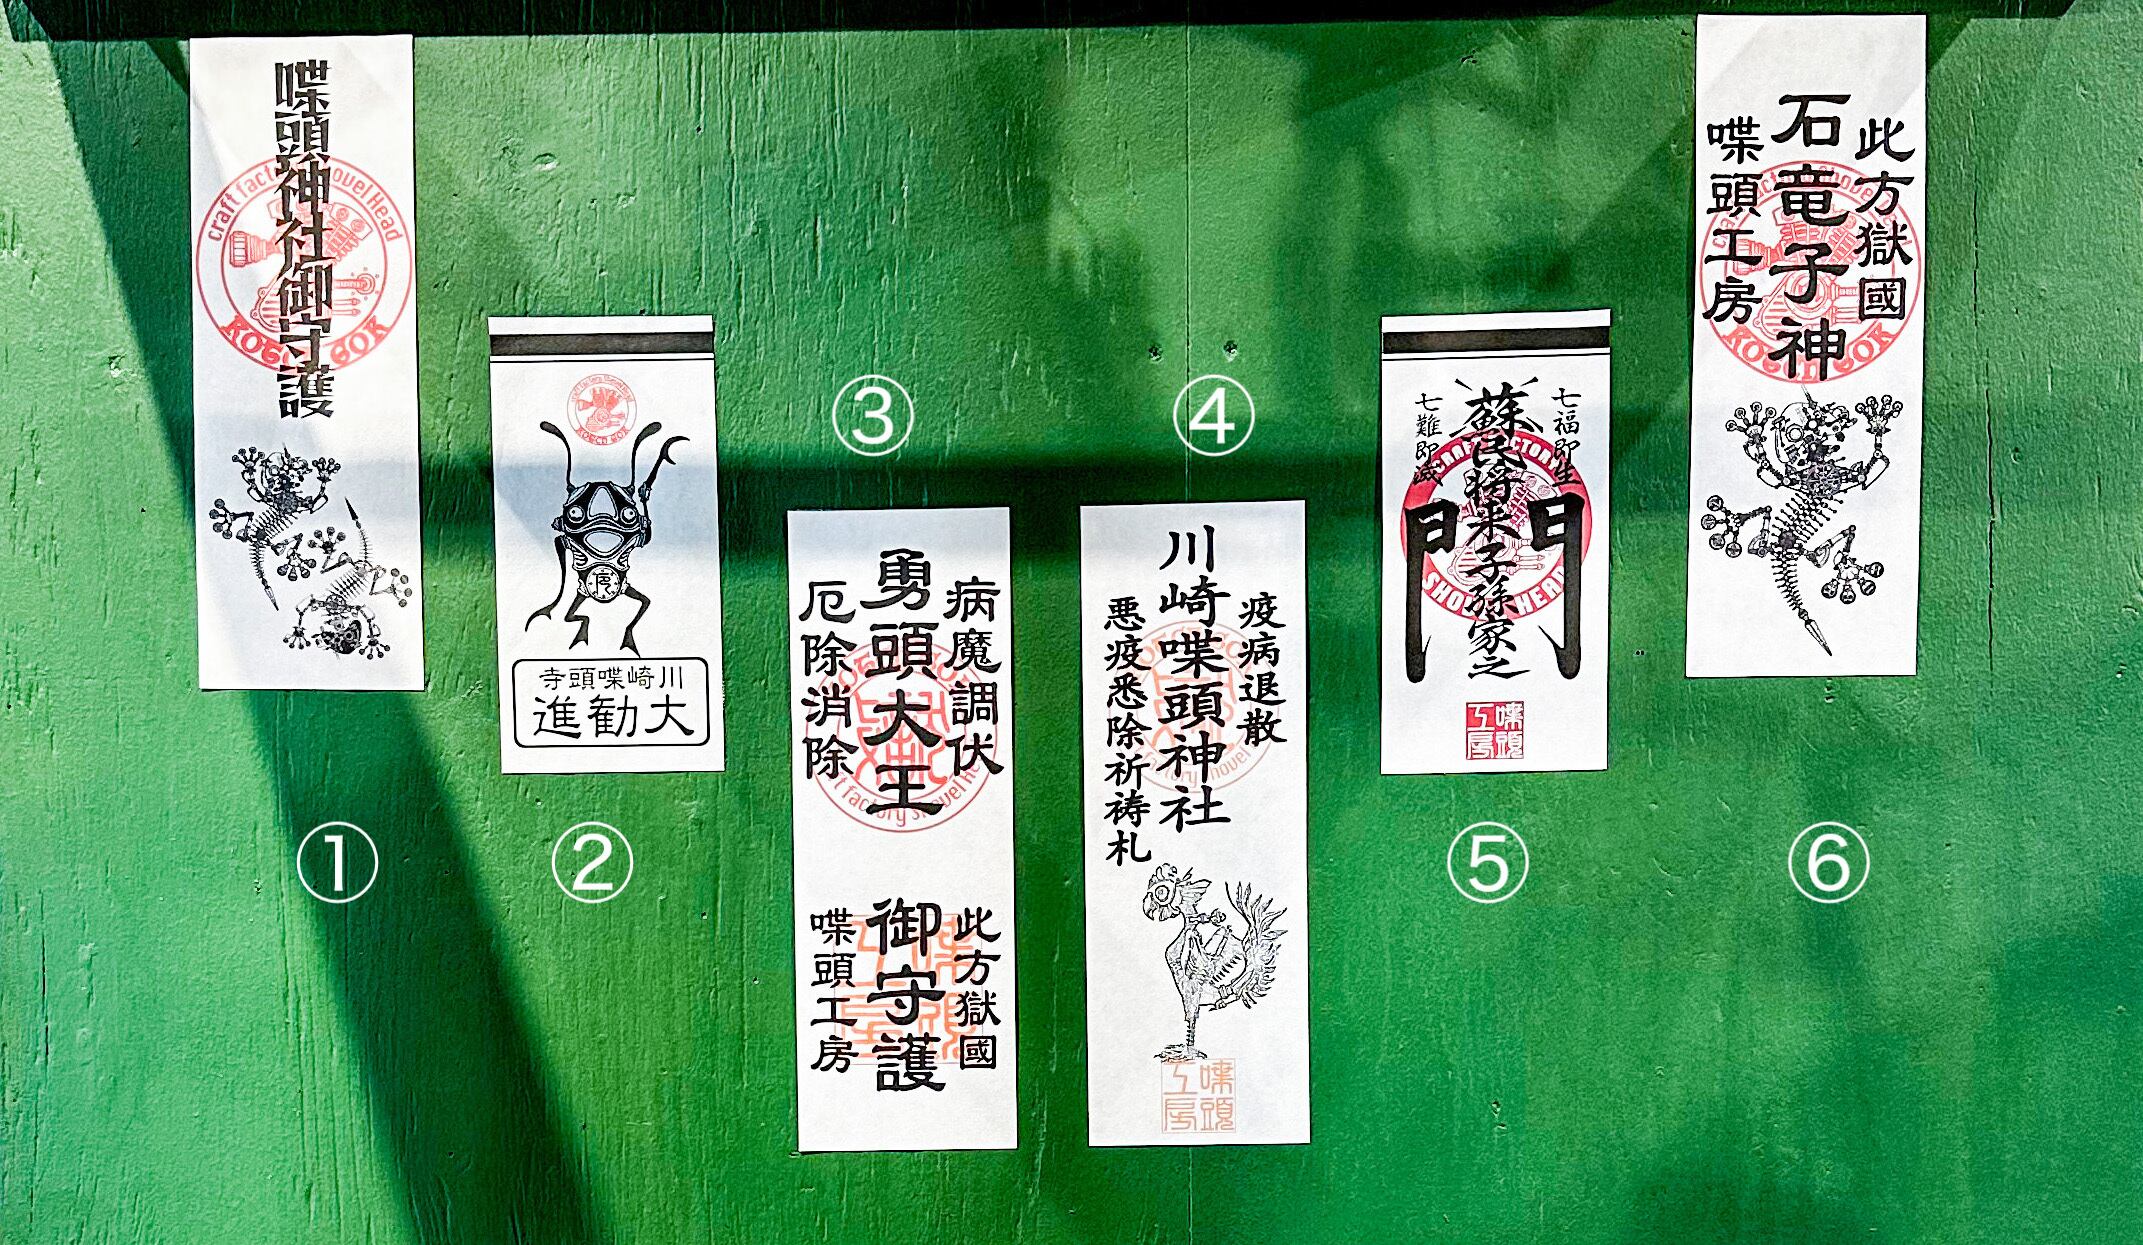 喋頭神社御守護
craft factory Shovel Head
KOGEN GOK
①
川崎喋頭寺
大勧進
②
③
病魔調伏
勇頭大王
厄除消除
此方獄國
御守護
喋頭工房
④
疫病退散
川崎喋頭神社
悪疫悉除祈祷札
喋頭工房
七福即生
蘇民将来子孫家之
門
七難即滅
CRAFT FACTORY
SHOVEL HEAD
喋頭工房
⑤
此方獄國
石竜子神
喋頭工房
⑥